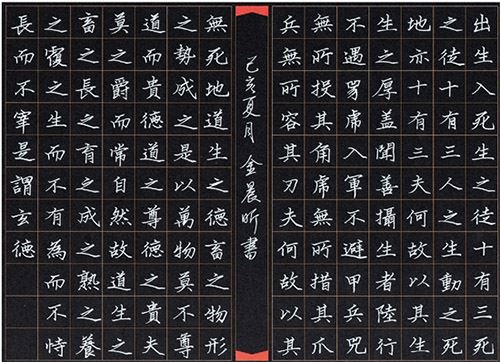 出生入死生之徒十有三死
之徒十有三人之生動之死
地亦十有三夫何故以其生
生之厚蓋聞善攝生者陸行
不遇兕虎入軍不避甲兵兕
無所投其角虎無所措其爪
兵無所容其刃夫何故以其
己亥夏月金晨昕書
無死地道生之德畜之物形
之勢成之是以萬物莫不尊
道而貴德道之尊德之貴夫
莫之爵而常自然故道生之
畜之長之育之成之熟之養
之覆之生而不有為而不恃
長而不宰是謂玄德